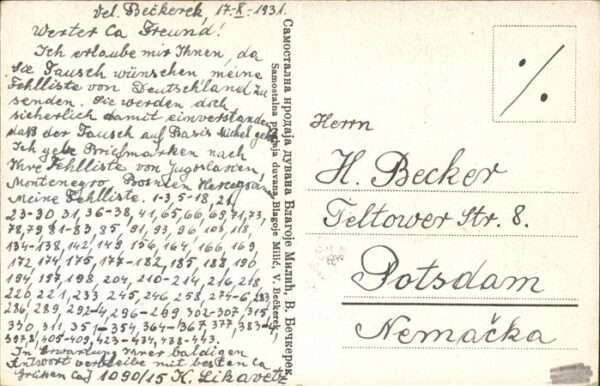 Vel. Bečkerek, 17-X-1931.
Werter Ca Freund!
Ich erlaube mir Ihnen, da
Sie Tausch wünschen meine
Fehlliste von Deutschland zu
senden. Sie werden doch
sicherlich damit einverstanden
daß der Tausch auf Basis Michel geht
Ich gebe Briefmarken nach
Ihre Fehlliste von Jugoslavien,
Montenegro, Bosnien Hercegovina
Meine Fehlliste. 1-3, 5-18, 21,
23-30, 31, 36-38, 41, 65, 66, 69, 71, 73,
78, 79, 81-83, 85, 91, 93, 96, 101, 118,
134-138, 142, 149, 156, 164, 166, 169
172, 174, 175, 177-182, 185, 188 190
194, 197, 198, 204, 210-214, 216, 218
220, 221, 233 245, 246 258, 274-6, 283,
286, 289, 292-4, 296-299 302-307, 315,
330, 311, 351-354, 364-367 377, 383-4,
397-8, 405-409, 423-434, 438-443.
In Erwartung Ihrer baldigen
Antwort verbleibe mit besten Ca
Grüßen Ca 1090/15 K. Likavetz
Самостална продаја дувана Благоје Милић, В. Бечкерек
Samostalna prodaja duvana, Blagoje Milić, V. Bečkerek
%
Herrn
H. Becker
Teltower Str. 8.
Potsdam
Nemačka